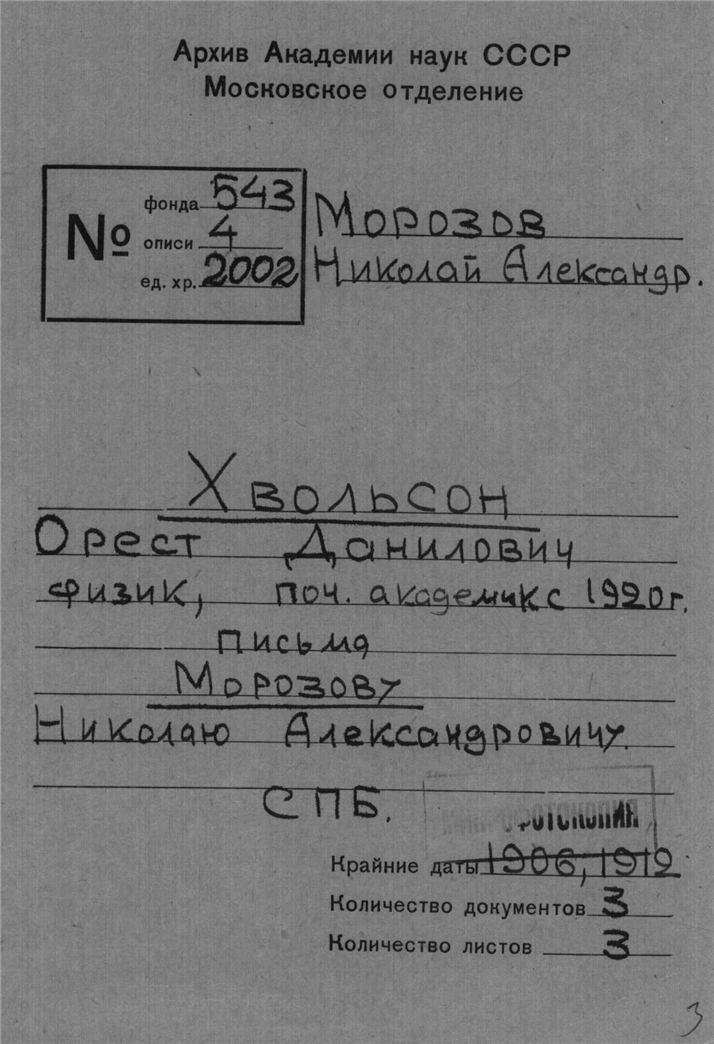 Архив Академии наук СССР
Московское отделение
№
фонда 543
описи 4
ед. хр. 2002
Морозов
Николай Александр.
Хвольсон
Орест Данилович
физик, поч. академик с 1920 г.
письма
Морозову
Николаю Александровичу.
СПБ.
ФОТОКОПИЯ
Крайние даты 1906, 1912
Количество документов 3
Количество листов 3
3